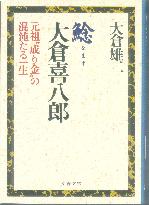 大倉雄二
鯰
なまず
大倉喜八郎
元祖“成り金”の
混沌たる一生
文春文庫